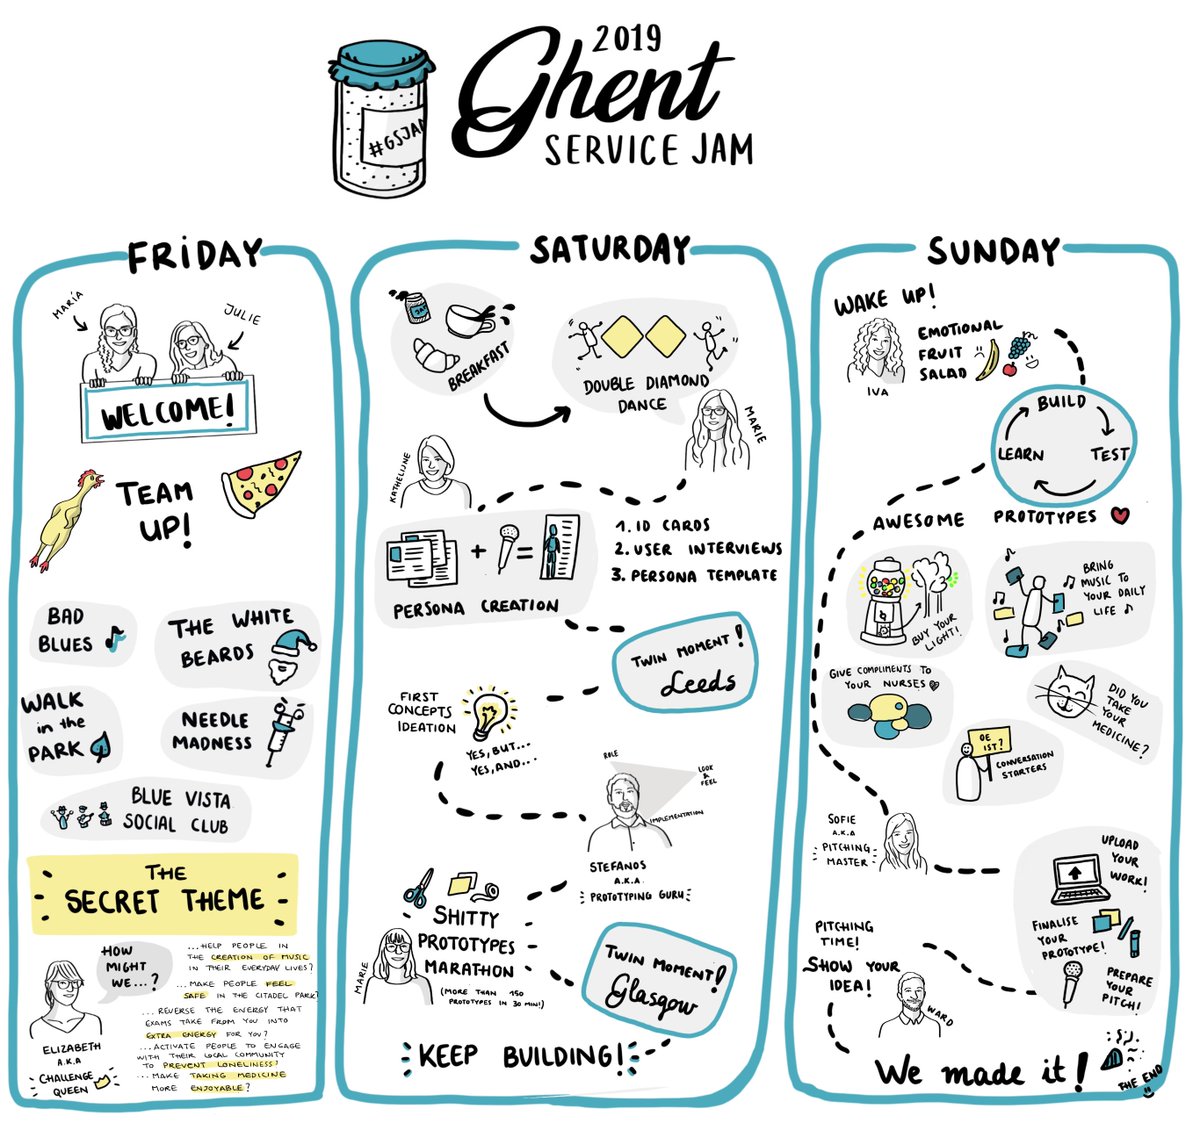 2019
Ghent
SERVICE JAM
#GSJAM
FRiDAY
MARÍA
JULIE
WELCOME!
TEAM
UP!
BAD
BLUES
THE WHITE
BEARDS
WALK
in the
PARK
NEEDLE
MADNESS
BLUE VISTA
SOCIAL CLUB
THE
SECRET THEME
HOW
MIGHT
WE...?
...HELP PEOPLE IN
THE CREATION OF MUSIC
IN THEIR EVERYDAY LIVES?
...MAKE PEOPLE FEEL
SAFE IN THE CITADEL PARK?
...REVERSE THE ENERGY THAT
EXAMS TAKE FROM YOU INTO
EXTRA ENERGY FOR YOU?
...ACTIVATE PEOPLE TO ENGAGE
WITH THEIR LOCAL COMMUNITY
TO PREVENT LONELINESS?
...MAKE TAKING MEDICINE
MORE ENJOYABLE?
ELIZABETH
A.K.A
CHALLENGE
QUEEN
SATURDAY
JAM
BREAKFAST
DOUBLE DIAMOND
DANCE
MARIE
KATHELIJNE
PERSONA CREATION
1. ID CARDS
2. USER INTERVIEWS
3. PERSONA TEMPLATE
TWIN MOMENT!
Leeds
FIRST
CONCEPTS
IDEATION
YES, BUT...
YES, AND...
ROLE
LOOK
&
FEEL
IMPLEMENTATION
STEFANOS
A.K.A.
PROTOTYPING GURU
SHITTY
PROTOTYPES
MARATHON
(MORE THAN 150
PROTOTYPES IN 30 MIN!)
MARIE
TWIN MOMENT!
Glasgow
KEEP BUILDING!
SUNDAY
WAKE UP!
EMOTIONAL
FRUIT
SALAD
IVA
BUILD
LEARN
TEST
AWESOME PROTOTYPES
BUY YOUR
LIGHT!
BRING
MUSIC TO
YOUR DAILY
LIFE
GIVE COMPLIMENTS TO
YOUR NURSES
DID YOU
TAKE
YOUR
MEDICINE?
OE
IST?
CONVERSATION
STARTERS
SOFIE
A.K.A
PITCHING
MASTER
UPLOAD
YOUR
WORK!
FINALISE
YOUR
PROTOTYPE!
PREPARE
YOUR
PITCH!
PITCHING
TIME!
SHOW YOUR
IDEA!
WARD
We made it!
THE END